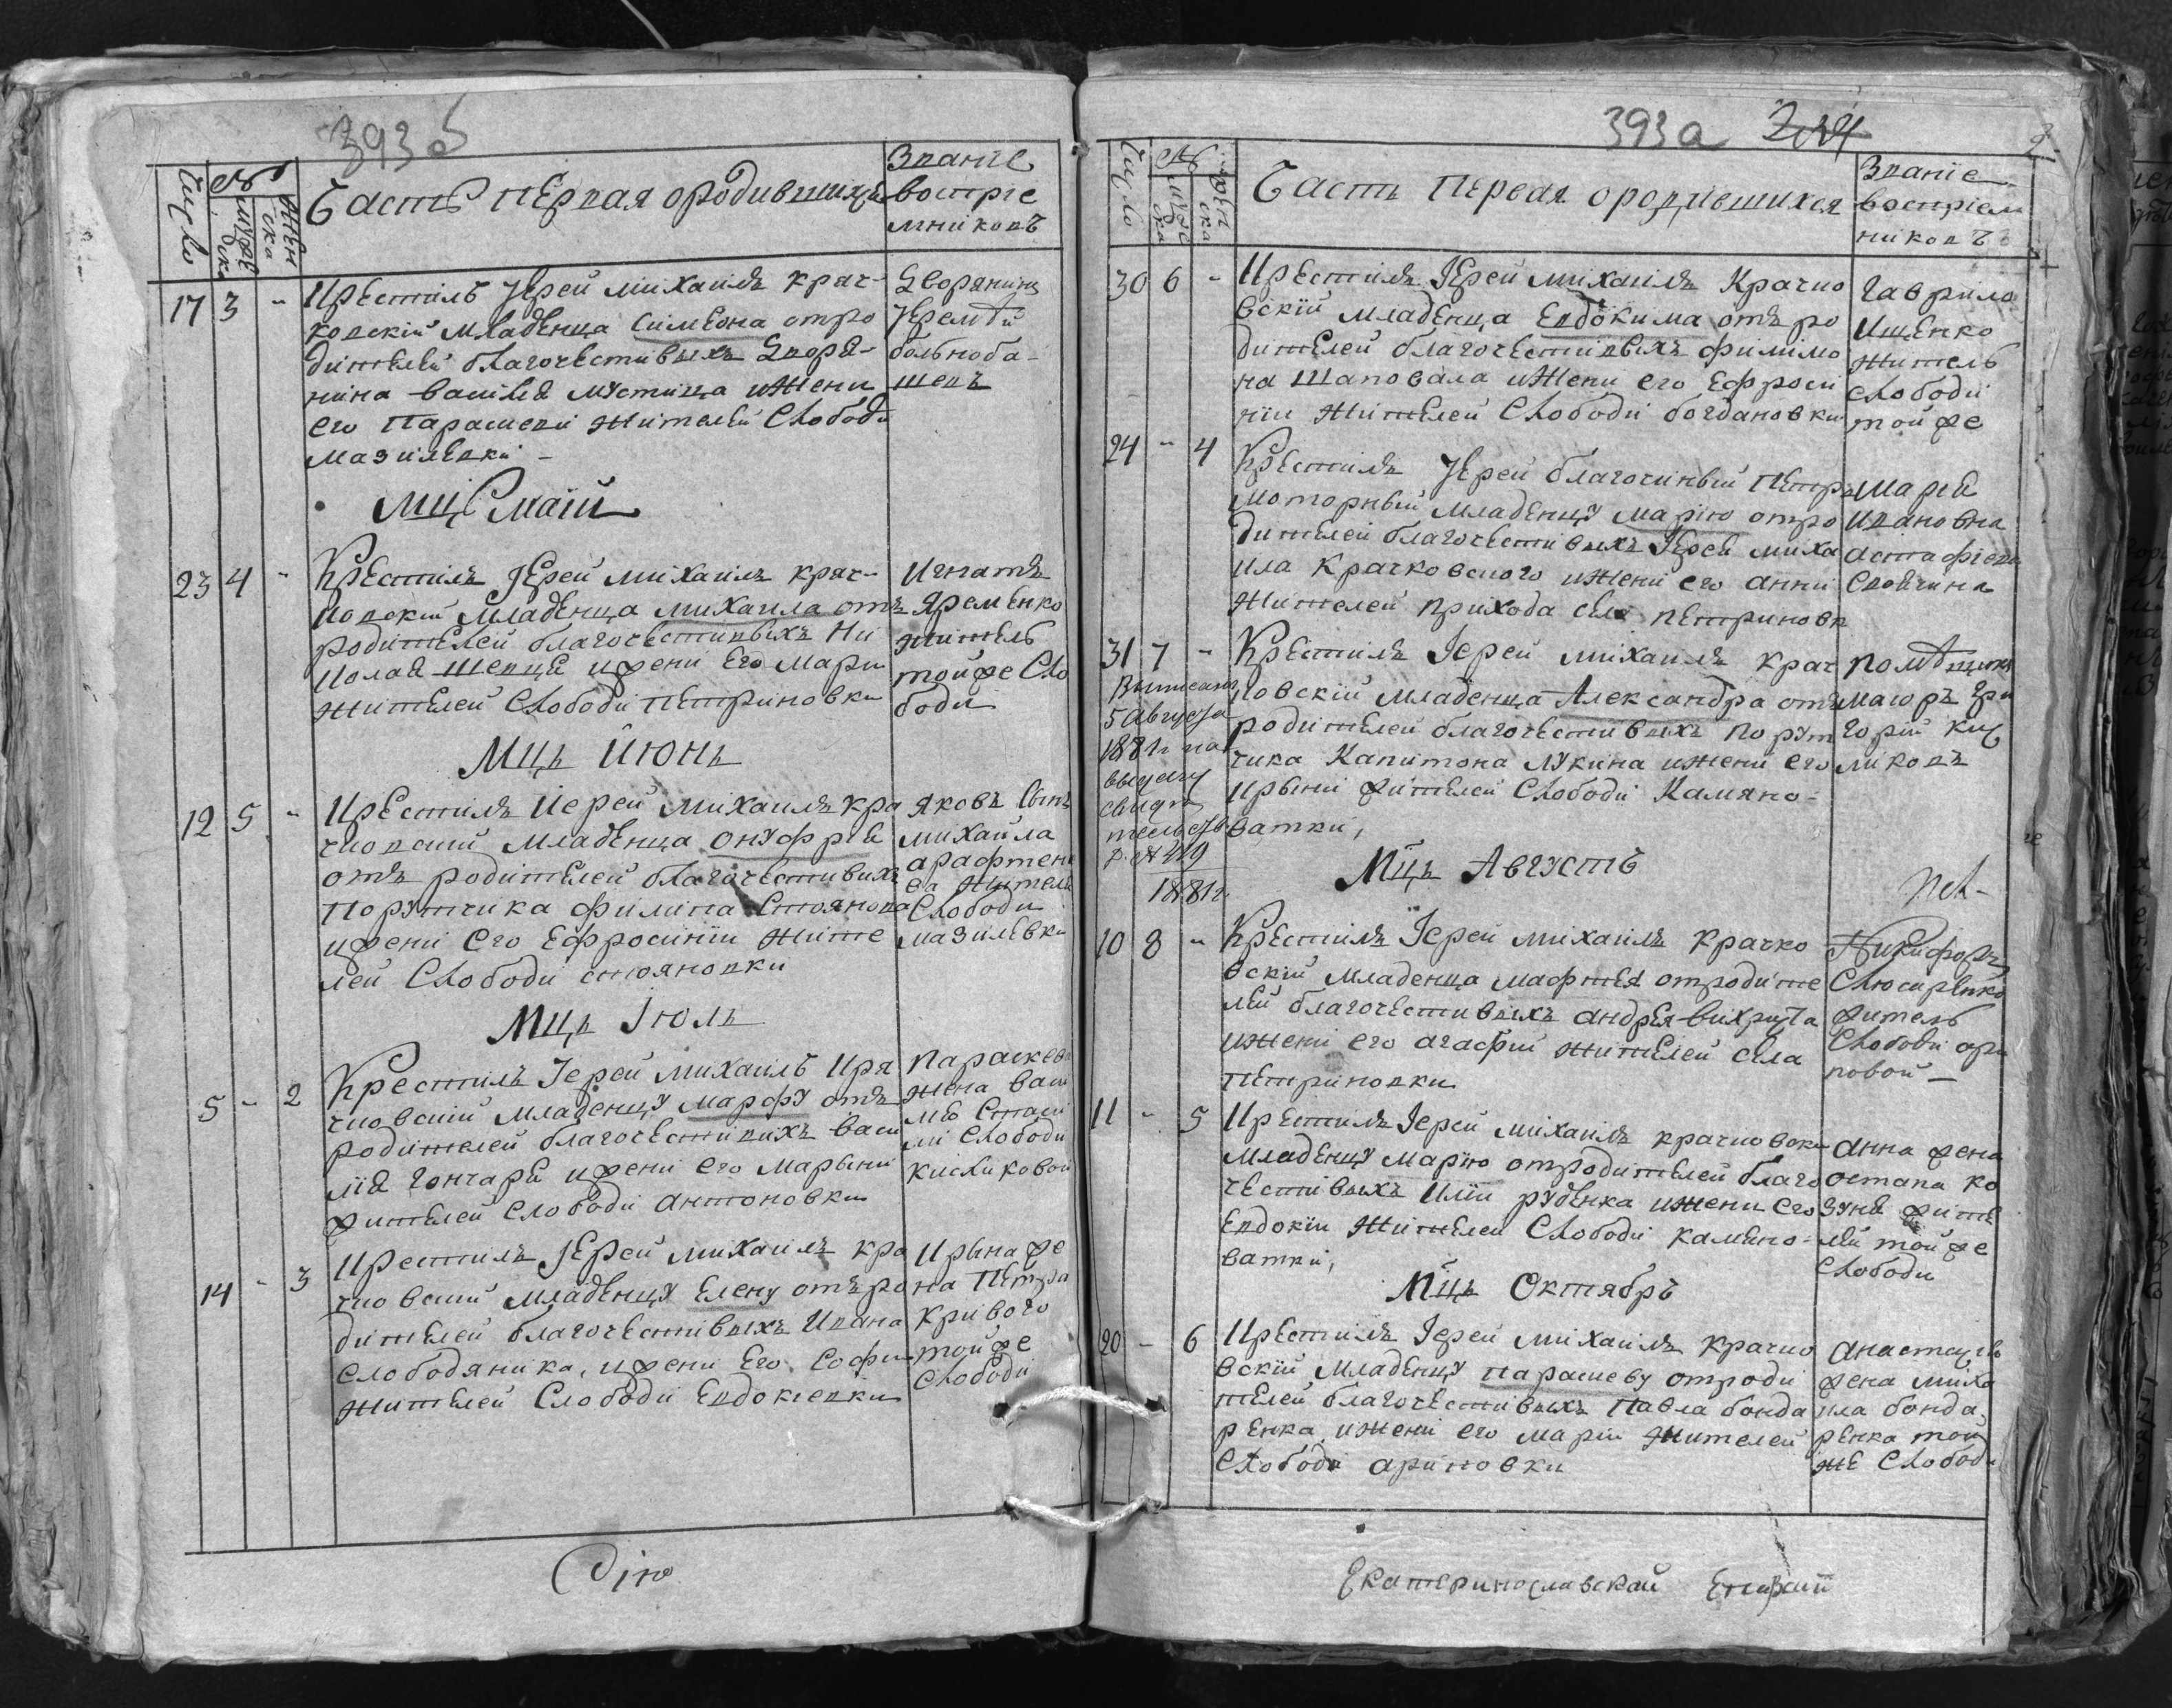 393б
Число
№
мужеска
женска
Часть первая ородившихся
Звание
восприе
мниковъ
17 3 -
Крестилъ Іерей михаилъ крач-
ковскій младенца симеона отро
дителей благочестивыхъ дворя-
нина василія мустяца ижени
его Параскеви жителей Слободи
мазилевки -
Дворянинъ
Іеремѣй
больноба-
шевъ
мцъ маій
23 4 -
Крестилъ Іерей михаилъ крач-
ковскій младенца михаила отъ
родителей благочестивыхъ Ни
колая шевця ижени Его Мари
жителей Слободи петриновки
Игнатъ
Яременко
житель
тойже Сло
боди
Мцъ Июнь
12 5 -
Крестилъ Иерей михаилъ кра
чковскій младенца онуфрея
отъ родителей благочестивихъ
Порутчика филипа Стоянова
ижени его Ефросиніи жите
лей Слободи стояновки
яковъ Сынъ
михаила
житель
Слободи
мазилевки
Мцъ Іюль
5 - 2
Крестилъ Іерей михаилъ Кра
чковскій младенцу марфу отъ
родителей благочестивихъ васи
лія гончаря ижени его марыни
жителей слободи антоновки
Параскева
жена васи
Слободи
кисликовой
14 - 3
Крестилъ Іерей михаилъ кра
чковскій младенцу елену отъро
дителей благочестивыхъ Ивана
слободяника, ижени Его Софии
жителей Слободи Евдокіевки
Ирына же
на Петра
кривого
тойже
слободи
Сію
393а
Число
№
мужеска
женска
Часть Первая ородившихся
Званіе
воспріем
никовъ
30 6 -
Крестилъ Іерей михаилъ Крачко
вскій младенца Евдокима отъро
дителей благочестивыхъ филимо
на Шаповала ижени его Ефроси
ніи жителей Слободи богдановки
гаврило
Ищенко
житель
слободи
той же
24 - 4
Крестилъ Іерей благочинный Петръ
моторный младенцу марію отро
дителей благочестивыхъ Іерея миха
ила Крачковского ижени его анни
жителей прихода села петриновк
Марія
Ивановна
31 7 -
Крестилъ Іерей михаилъ крач
ковскій младенца Александра отъ
родителей благочестивыхъ Порут
чика Капитона лукина ижени его
Ирыни жителей Слободи Камяно-
ватки,
помѣщикъ
маіоръ Гри
горій Кущ
ліковъ
Выписано
5 Августа
1881г на
выдачу
свидѣ
тельства
№ 419
1881г.
Мцъ Августъ
10 8 -
Крестилъ Іерей михаилъ Крачко
вскій младенца мафтея отродите
лей благочестивыхъ андрея вихриста
ижени его агафии жителей села
петриновки
Никифоръ
Слюсаренко
житель
Слободи ори
новой -
11 - 5
Крестилъ Іерей михаилъ крачковски
младенцу марію отродителей благо
честивыхъ Иліи руденка ижени его
Евдокіи жителей Слободи камяно-
ватки,
анна жена
остапа ко
зуня жите
лей той же
слободи
Мцъ Октябрь
20 - 6
Крестилъ Іерей михаилъ крачко
вскій младенцу параскеву отроди
телей благочестивыхъ Павла бонда
ренка ижени его маріи жителей
Слободи ариновки
жена миха
ила бонда
ренка той
же слободи
Екатеринославской Епархіи